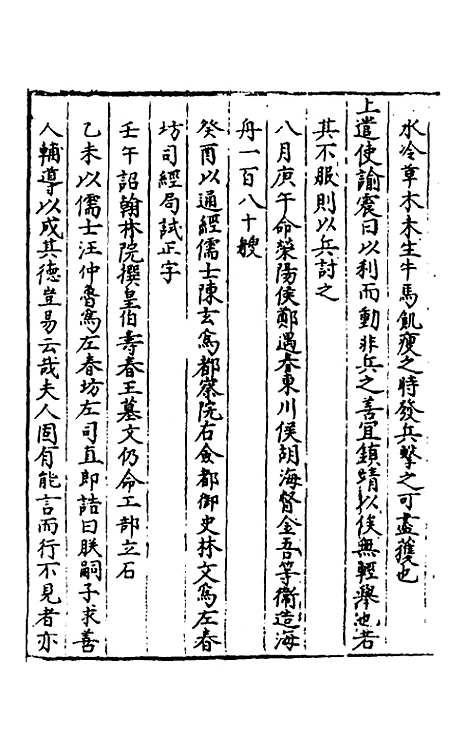 水冷草木未生牛馬飢瘦之時發兵擊之可盡獲也
上遣使諭震曰以利而動非兵之善宜鎮靖以俟無輕舉也若
其不服則以兵討之
八月庚午命滎陽侯鄭遇春東川侯胡海督金吾等衛造海
舟一百八十艘
癸酉以通經儒士陳玄為都察院右僉都御史林文為左春
坊司經局試正字
壬午詔翰林院撰皇伯壽春王墓文仍命工部立石
乙未以儒士汪仲魯為左春坊左司直郎誥曰朕嗣子求善
人輔導以成其德豈易云哉夫人固有能言而行不見者亦